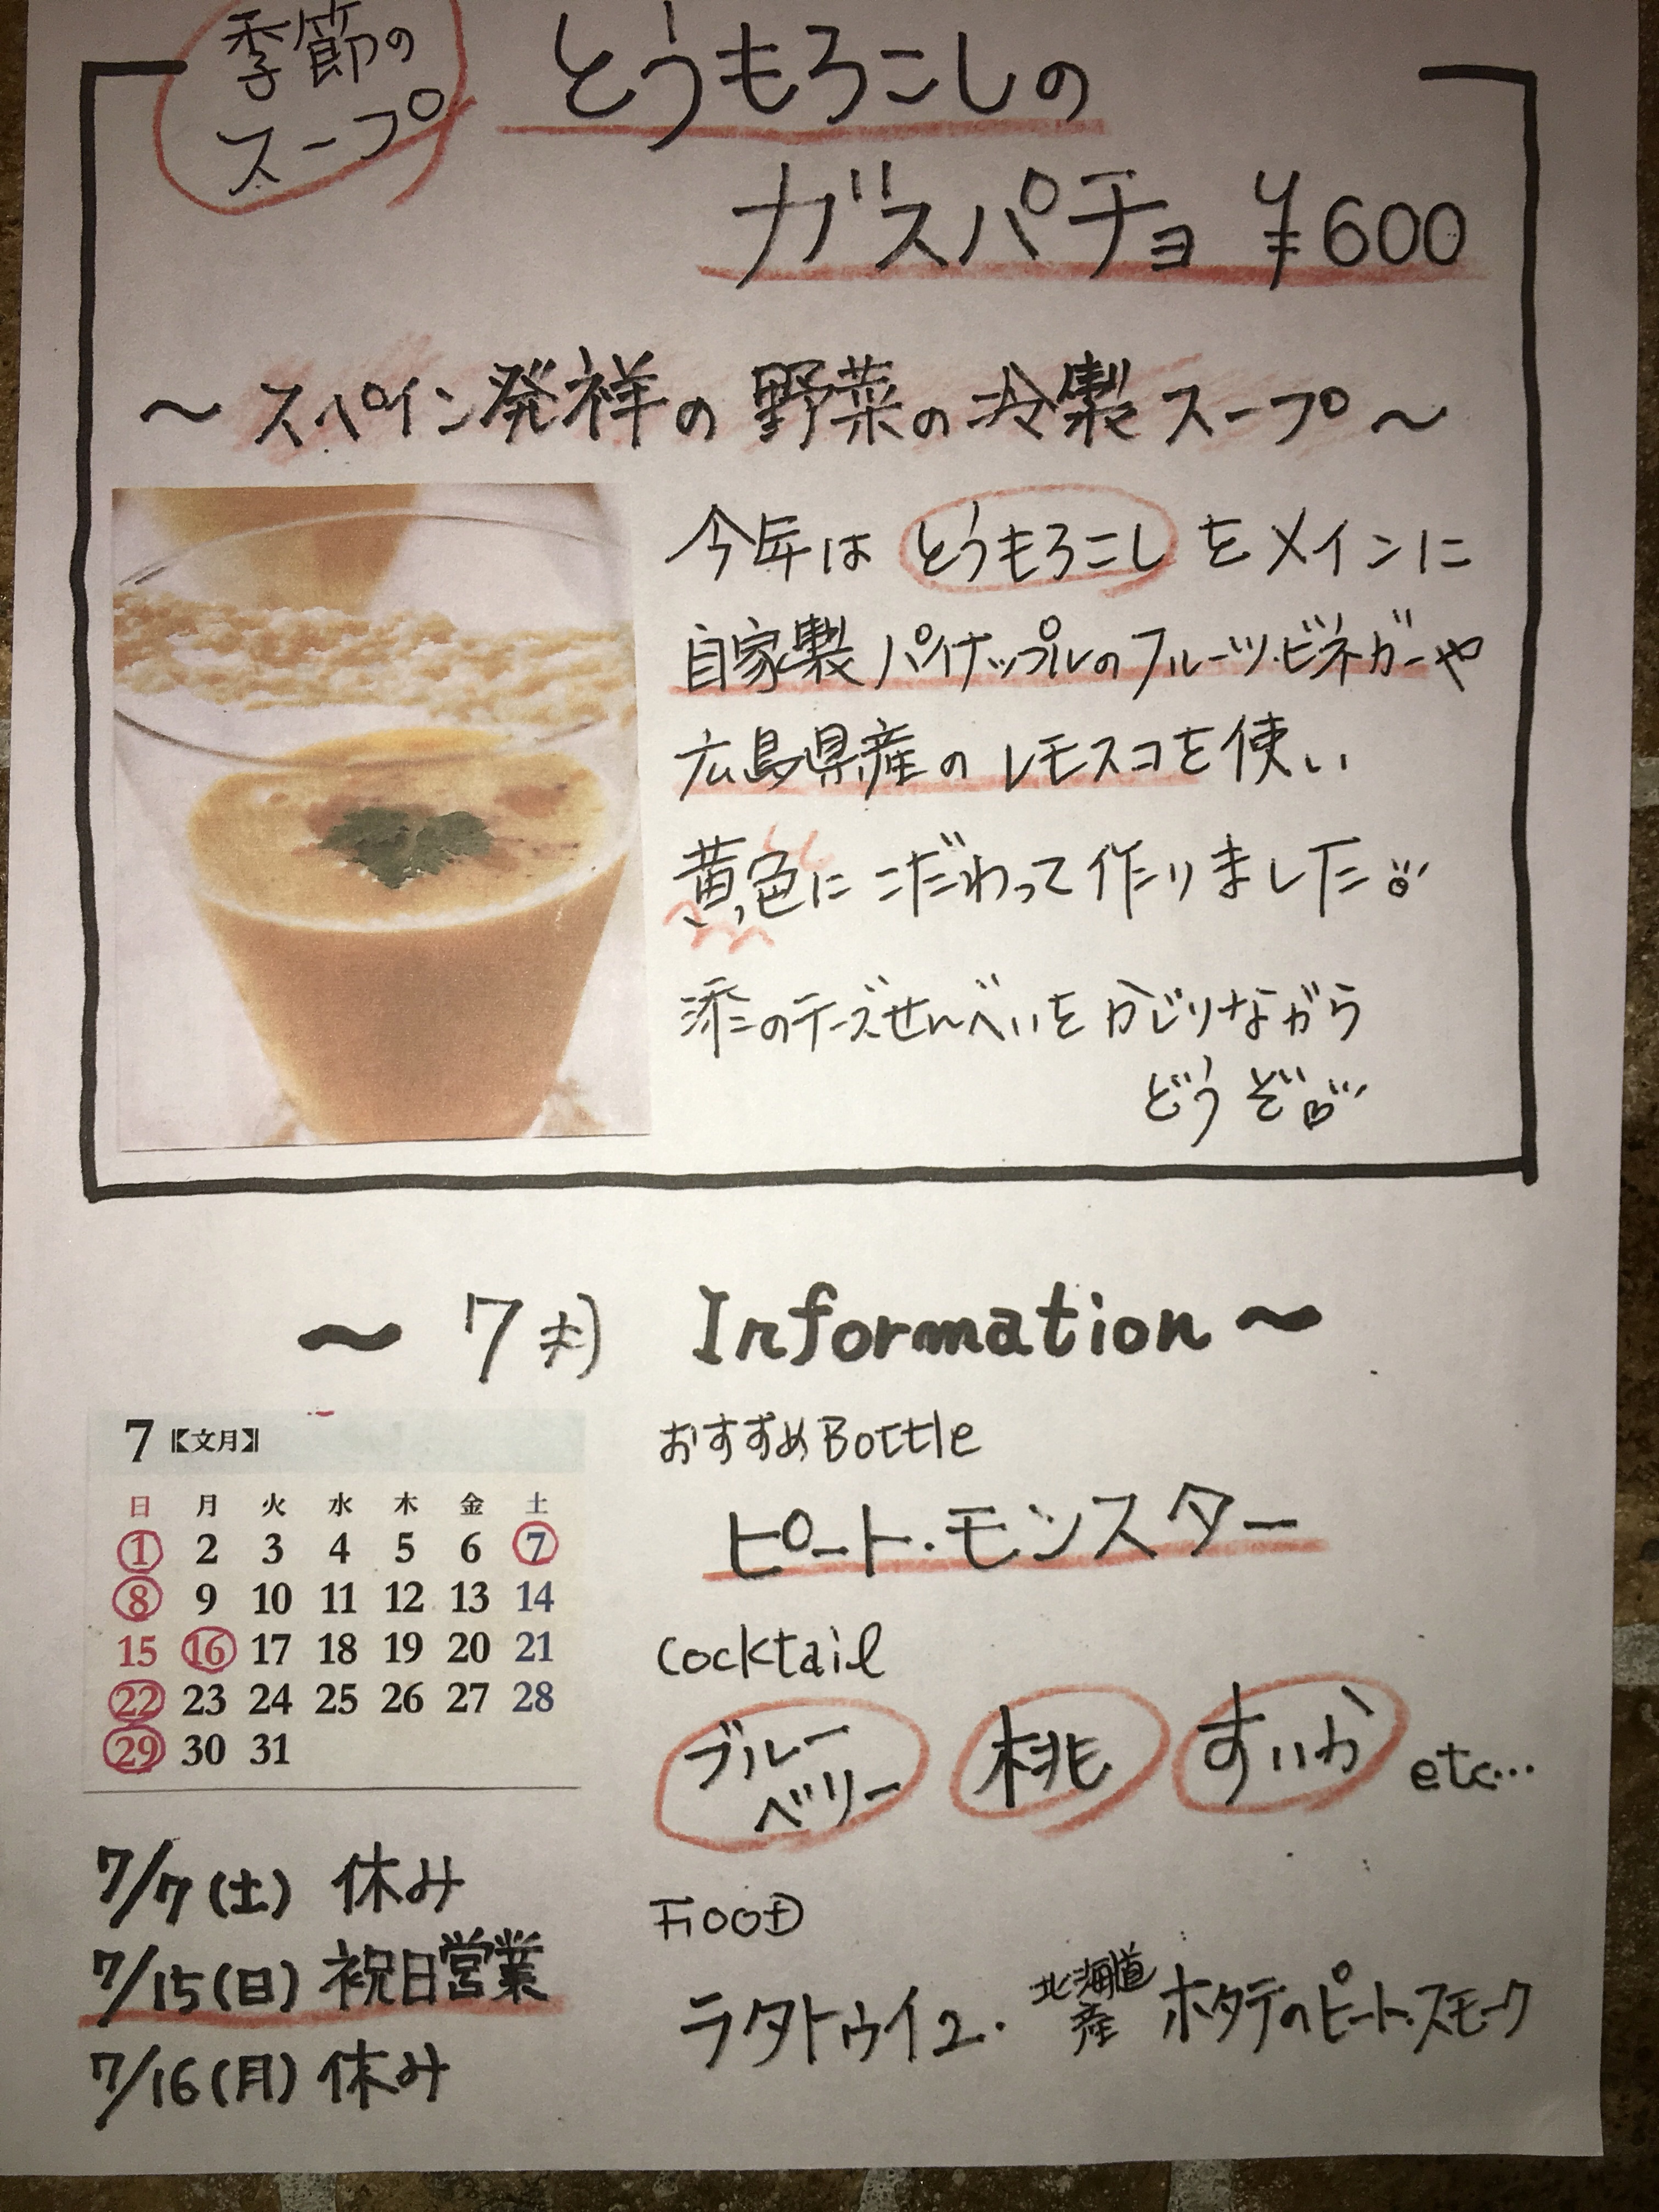 季節の
スープ
とうもろこしの
ガスパチョ ¥600
～スペイン発祥の野菜の冷製スープ～
今年は とうもろこし をメインに
自家製パイナップルのフルーツ・ビネガーや
広島県産のレモスコを使い
黄色にこだわって作りました
添えのチーズせんべいを かじりながら
どうぞ
～ 7月 Information ～
7 〖文月〗
日 月 火 水 木 金 土
1 2 3 4 5 6 7
8 9 10 11 12 13 14
15 16 17 18 19 20 21
22 23 24 25 26 27 28
29 30 31
7/7(土) 休み
7/15(日) 祝日営業
7/16(月) 休み
おすすめBottle
ピート・モンスター
Cocktail
ブルー
ベリー
桃
すいか
etc...
FOOD
ラタトゥイユ・北海道産 ホタテのピート・スモーク